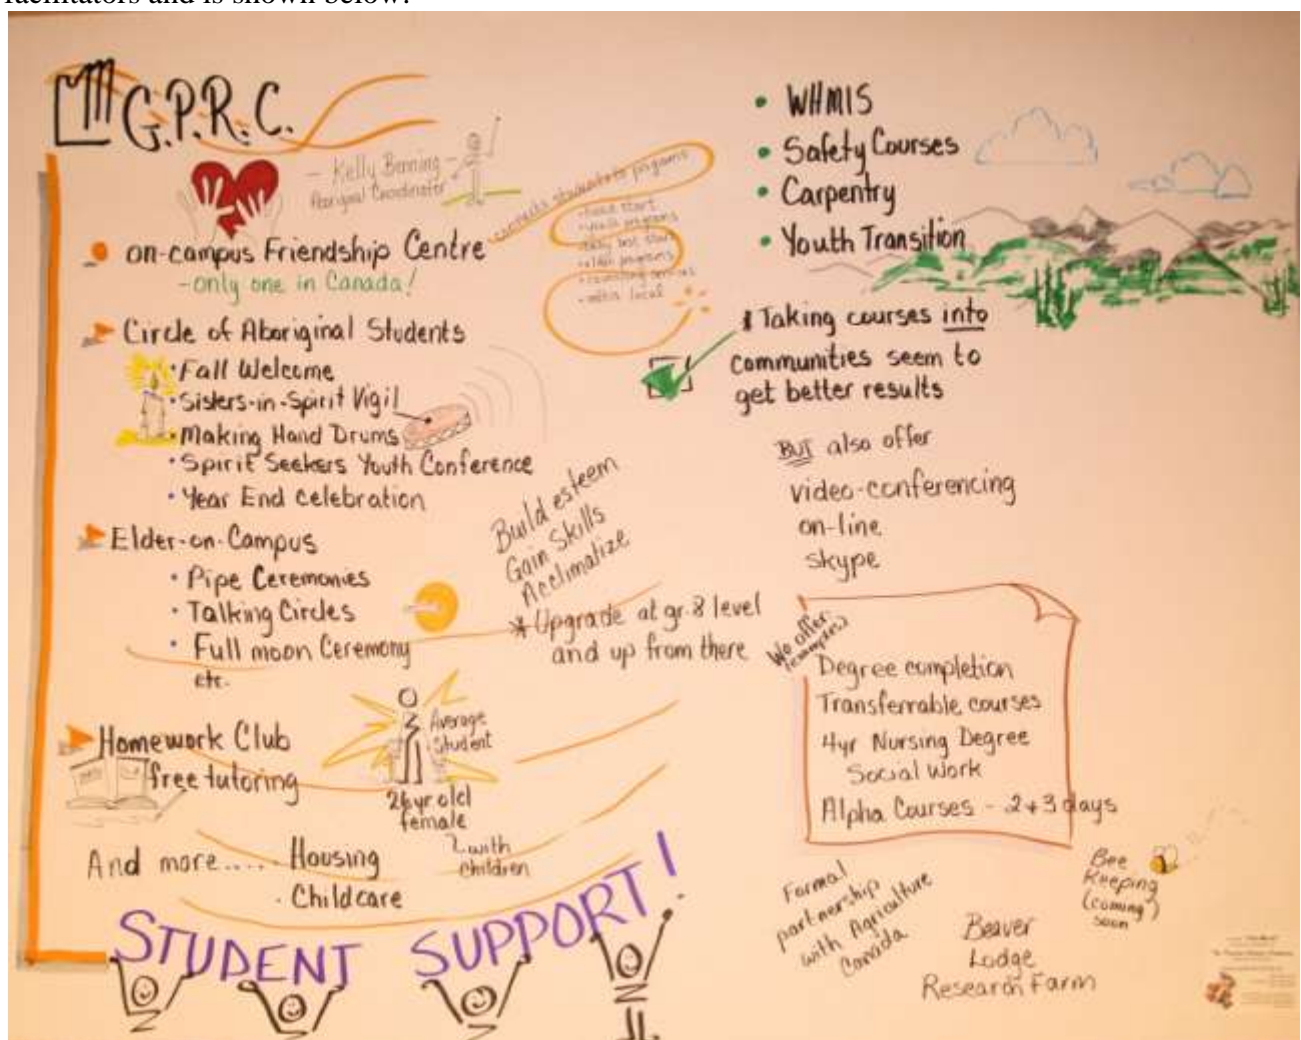 facilitators and is shown below.
G.P.R.C.
- Kelly Benning -
Aboriginal Coordinator
connects students to programs
• head start
• youth programs
• counselling services
• métis local
on-campus Friendship Centre
- only one in Canada!
Circle of Aboriginal Students
• Fall Welcome
• Sisters-in-Spirit Vigil
• Making Hand Drums
• Spirit Seekers Youth Conference
• Year End Celebration
Elder-on-Campus
• Pipe Ceremonies
• Talking Circles
• Full moon Ceremony
etc.
Build esteem
Gain Skills
Acclimatize
* Upgrade at gr. 8 level
and up from there
Homework Club
free tutoring
Average
Student
26 yr old
female
with
children
And more..... Housing
. Childcare
STUDENT SUPPORT!
• WHMIS
• Safety Courses
• Carpentry
• Youth Transition
* Taking courses into
communities seem to
get better results
BUT also offer
video-conferencing
on-line
skype
We offer
(examples)
Degree completion
Transferrable courses
4yr Nursing Degree
Social Work
Alpha Courses - 2+3 days
Formal
partnership
with Agriculture
Canada
Beaver
Lodge
Research Farm
Bee
Keeping
(coming
soon)